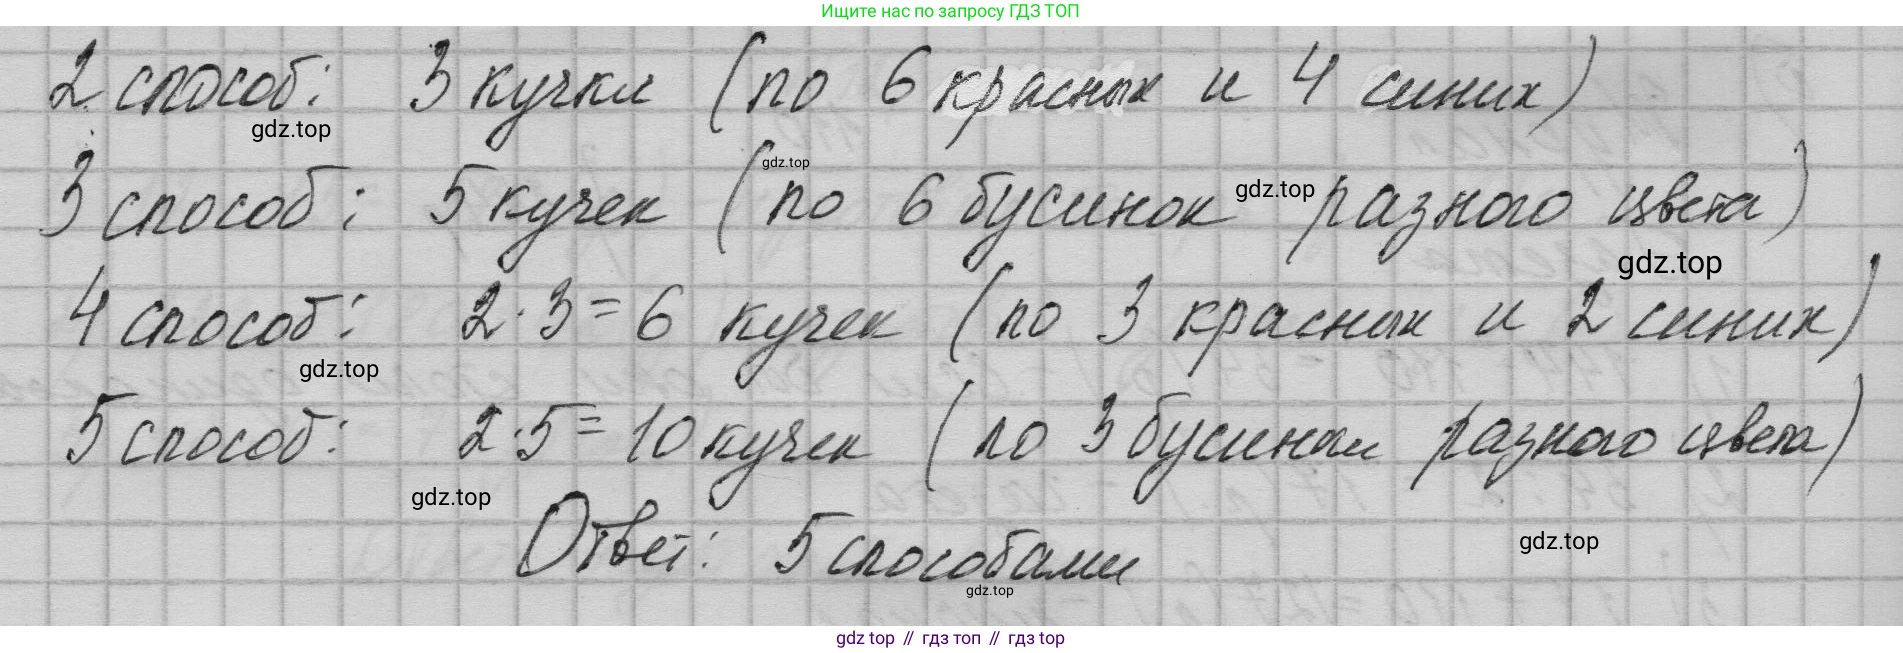 Ищите нас по запросу ГДЗ ТОП
2 способ: 3 кучки (по 6 красных и 4 синих)
gdz.top
gdz.top
3 способ: 5 кучек (по 6 бусинок разного цвета)
gdz.top
gdz.top
4 способ: 2·3=6 кучек (по 3 красных и 2 синих)
gdz.top
5 способ: 2·5=10 кучек (по 3 бусинки разного цвета)
gdz.top
Ответ: 5 способами
gdz.top
gdz.top
gdz top // гдз топ // гдз top